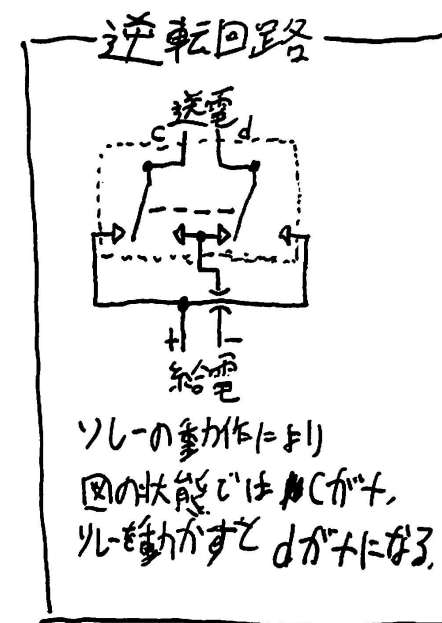 逆転回路
送電
c d
+ −
給電
リレーの動作により
図の状態では Cが+,
リレーを動かすと dが+になる.